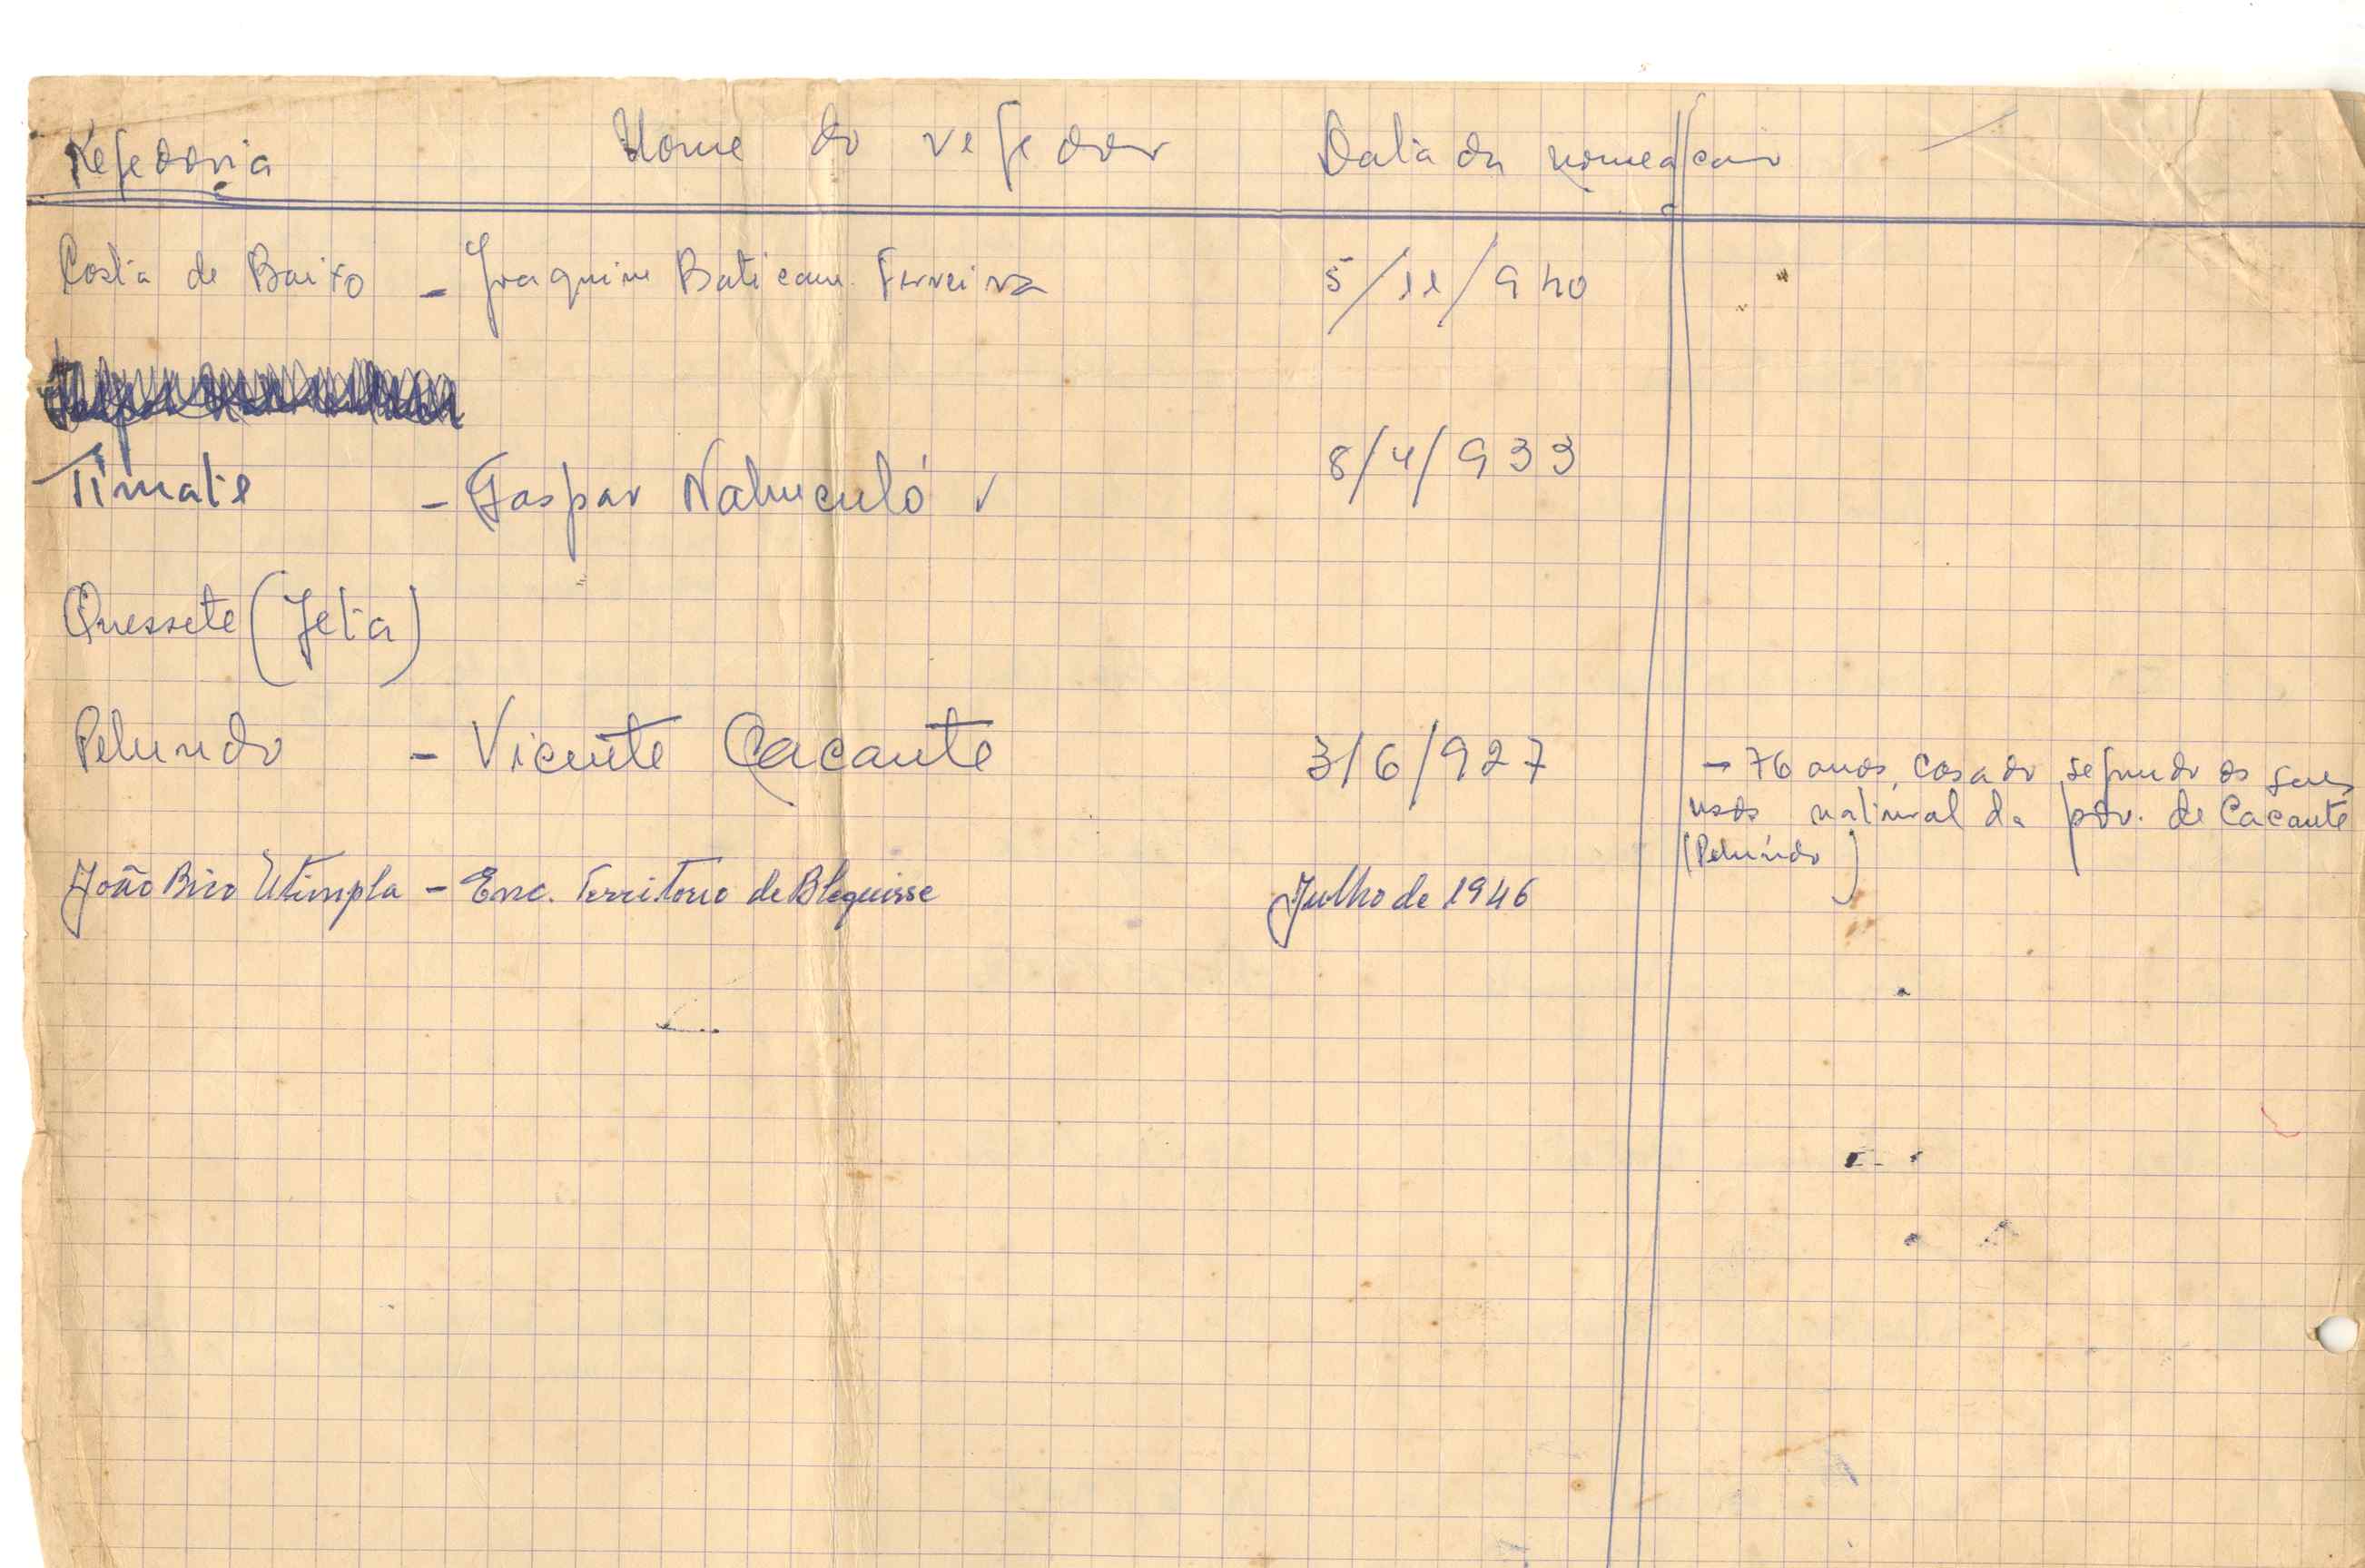 Regedoria Nome do regedor Data da nomeação
Costa de Baixo - Joaquim Batican Ferreira 5/11/940
Timate - Gaspar Nahuculó 8/4/933
Quessete (Jeta)
Pelundo - Vicente Cacante 3/6/927 - 76 anos, casado segundo os seus
usos natural da pov. de Cacante
(Pelundo)
João Bico Utimpla - Enc. Territorio de Bleguisse Julho de 1946